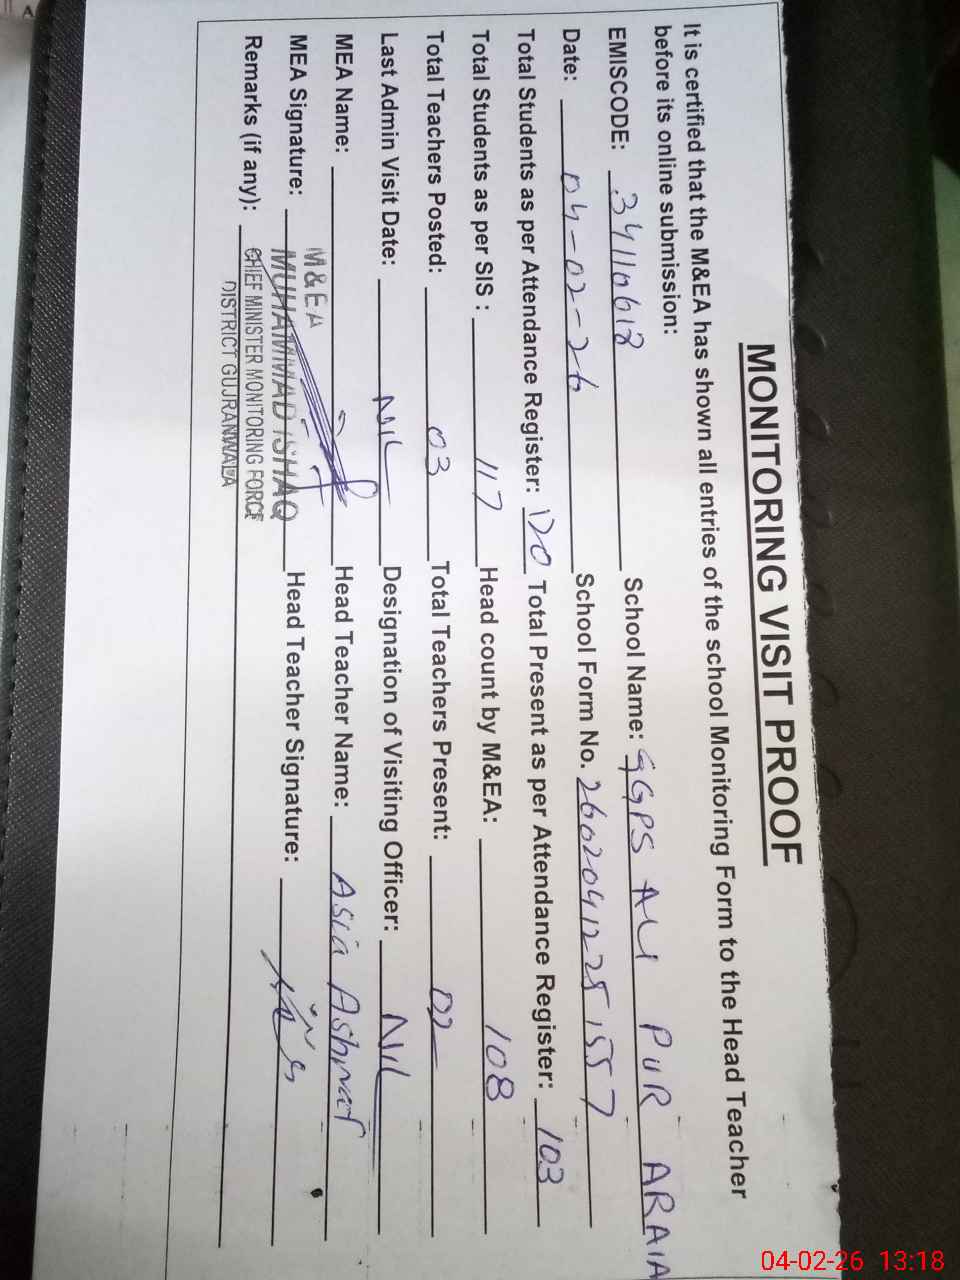 MONITORING VISIT PROOF
It is certified that the M&EA has shown all entries of the school Monitoring Form to the Head Teacher
before its online submission:
EMISCODE: 34110612 School Name: GGPS ALI PUR ARAIA
Date: 04-02-26 School Form No. 26020412251557
Total Students as per Attendance Register: 120 Total Present as per Attendance Register: 103
Total Students as per SIS : 117 Head count by M&EA: 108
Total Teachers Posted: 03 Total Teachers Present: 02
Last Admin Visit Date: NIL Designation of Visiting Officer: NIL
MEA Name: Head Teacher Name: Asia Ashraf
M&EA
MEA Signature: MUHAMMAD ISHAQ Head Teacher Signature:
Remarks (if any): CHIEF MINISTER MONITORING FORCE
DISTRICT GUJRANWALA
04-02-26 13:18